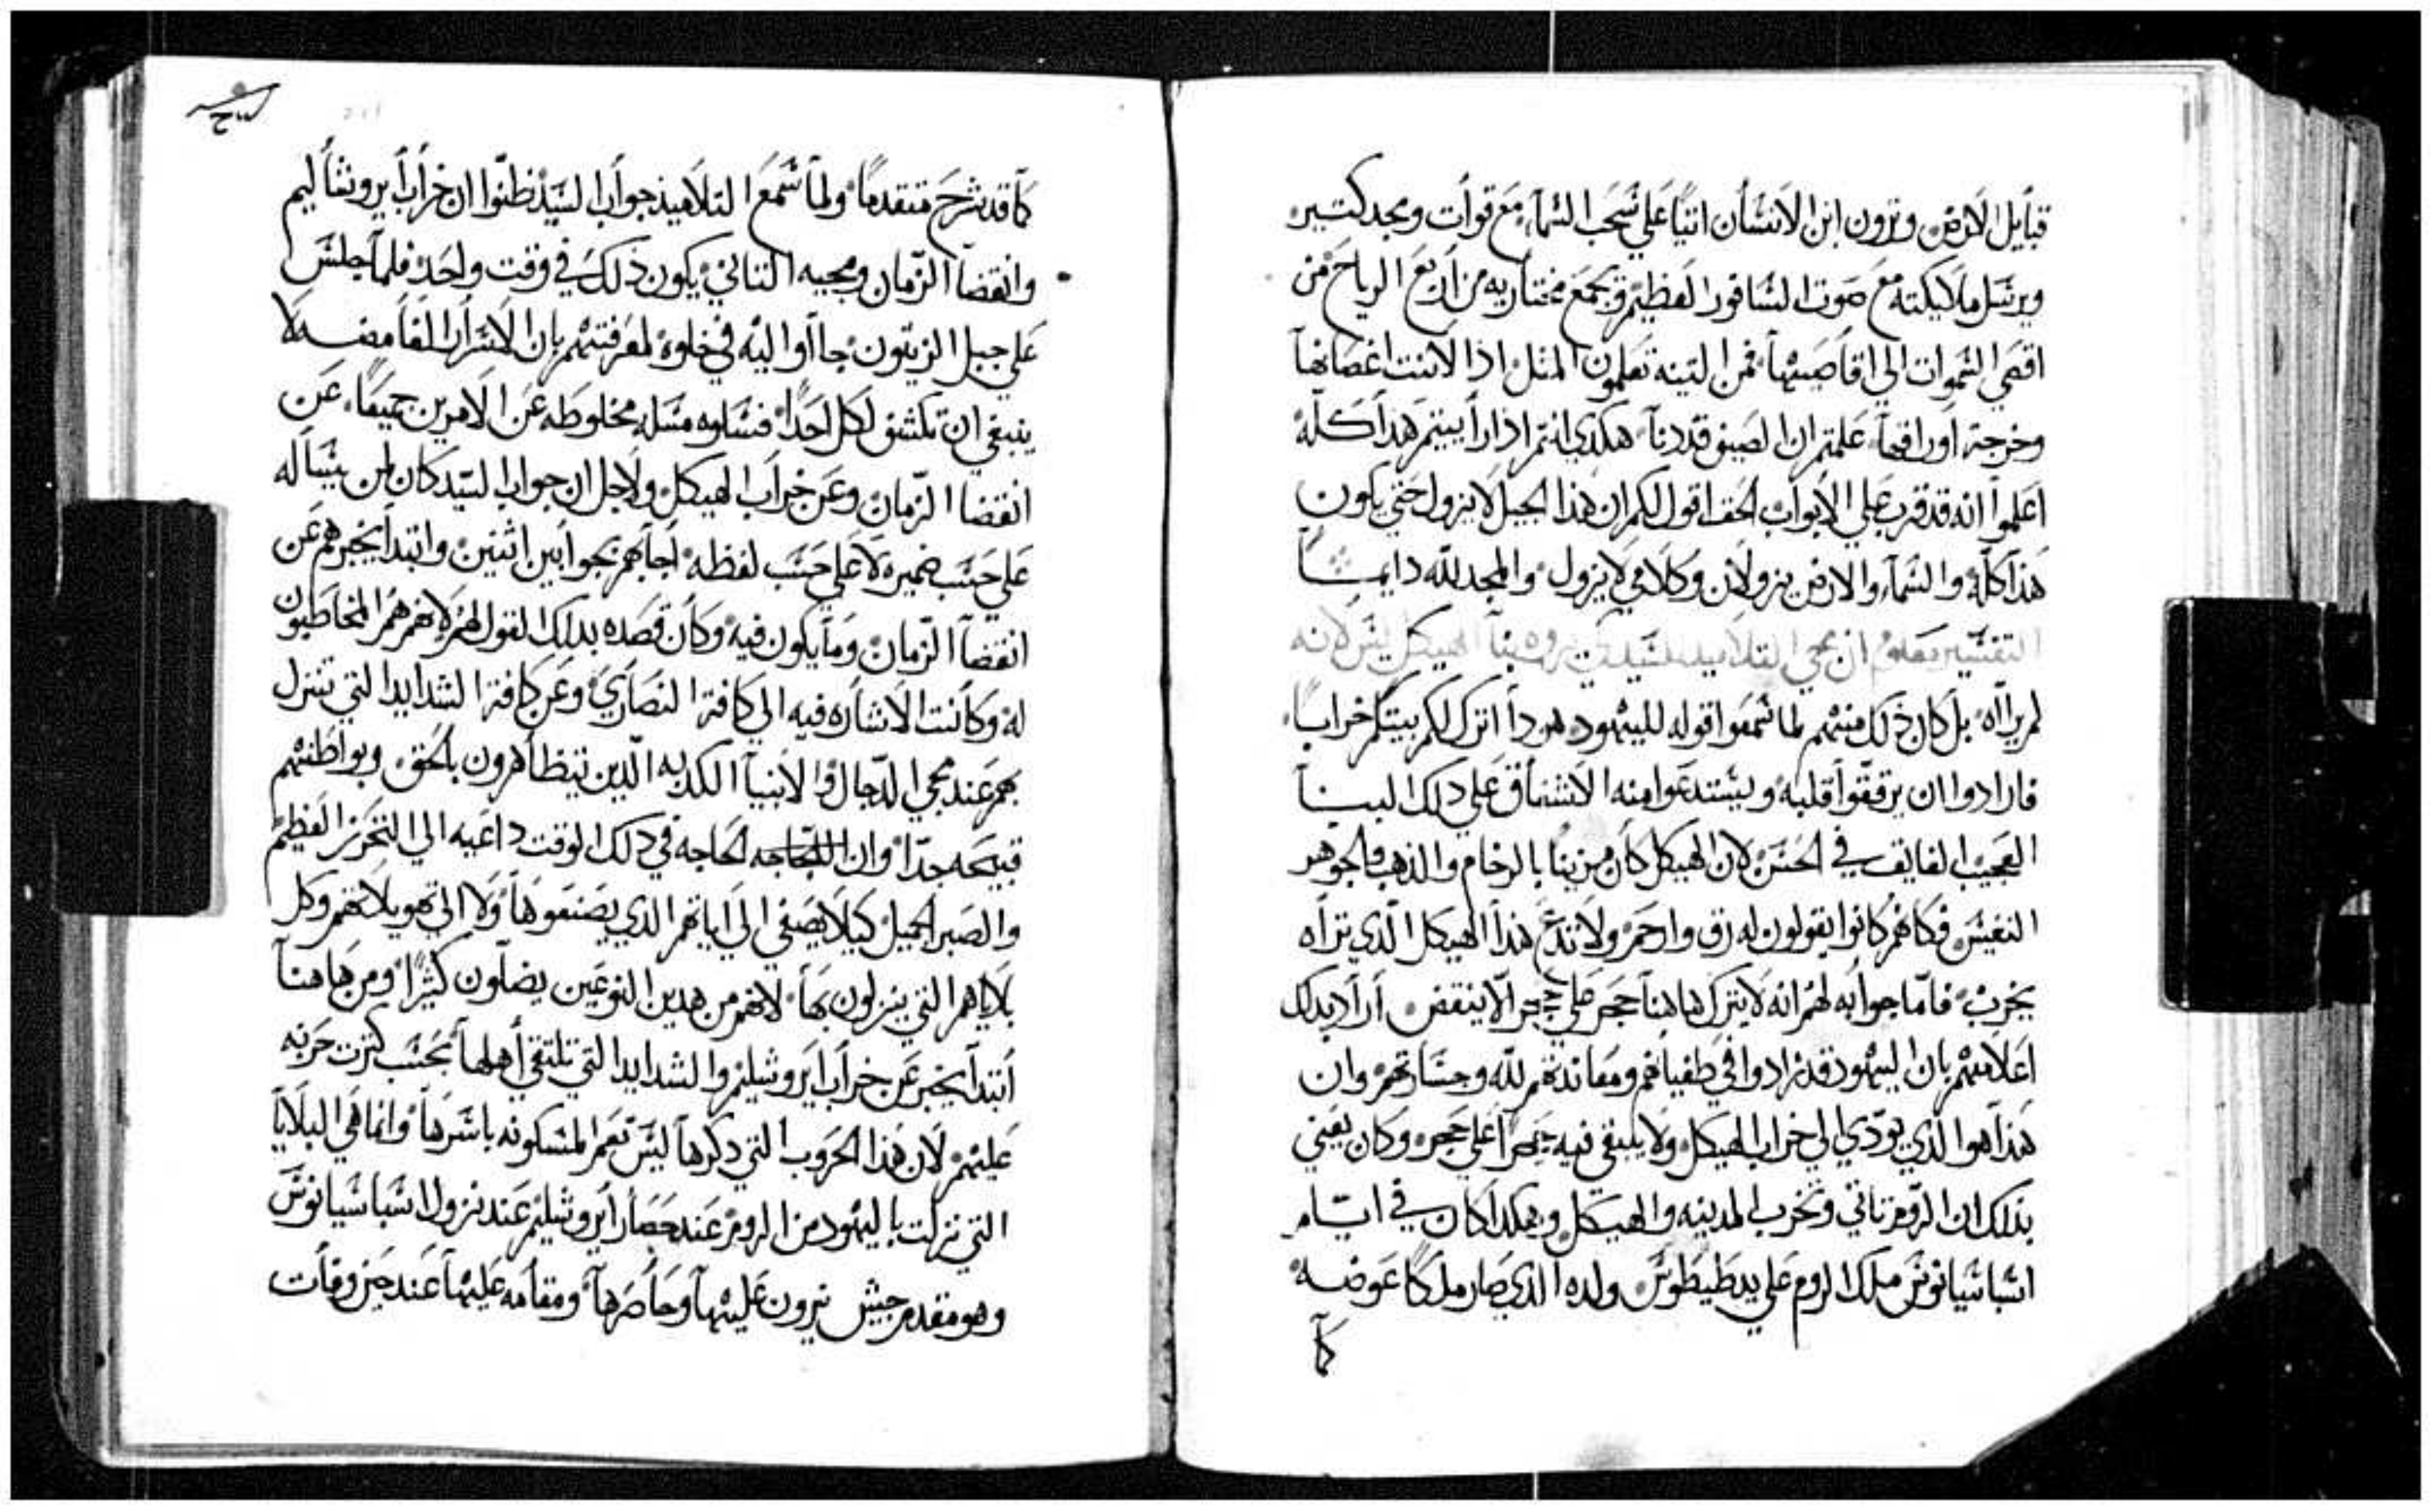 قبايل الارض وترون ابن الانسان اتيا علي سحب السمآ مع قوات ومجد كتير
ويرسل ملايكته مع صوت السافور العظيم وتجمع مختاريه من اربع الرياح من
اقصي السموات الي اقاصيها فمن التينه تعلمون المتل اذا لانت اغصانها
وخرجة اوراقها علمتم ان الصيف قد دنا هكدي انتم اذا رايتم هدا كله
اعلموا انه قد قرب علي الابواب الحق اقول لكم ان هذا الجيل لا يزول حتي يكون
هذا كله والسمآ والارض يزولان وكلامي لا يزول والمجد لله دايمًا
التفسير معلوم ان مجي التلاميد للسيد كي يروه بنا الهيكل ليس لانه
لم يراه بل كان ذلك منهم لما سمعوا قوله لليهود هودا اترك لكم بيتكم خرابًا
فارادوا ان يرققوا قلبه ويستدعوا منه الاشفاق علي دلك البنا
العجيب الفايق في الحسن لان الهيكل كان مزينا بالرخام والذهب والجوهر
النفيس فكانهم كانوا يقولون له رق وارحم ولا تدع هذا الهيكل الذي تراه
يخرب فاما جوابه لهم انه لا يترك هاهنا حجر علي حجر الا ينقض اراد بدلك
اعلامهم بان اليهود قد زادوا في طغيانهم ومعاندتهم لله وجسارتهم وان
هذا هوا الذي يودي الي خراب الهيكل ولا يبقي فيه حجرا علي حجر وكان يعني
بذلك ان الروم تاتي وتخرب المدينه والهيكل وهكدا كان في ايام
اسباسيانوس ملك الروم علي يد طيطوس ولده الذي صار ملكا عوضه
كما
كما قد شرح متقدما ولما سمع التلاميذ جواب السيد ظنوا ان خراب يروشاليم
وانقضا الزمان ومجيه التاني يكون ذلك في وقت واحد فلما جلس
علي جبل الزيتون جااوا اليه في خلوه لمعرفتهم بان الاسرار الغامضه لا
ينبغي ان تكشف لكل احدا فسالوه مسله مخلوطه عن الامرين جميعا عن
انقضا الزمان وعن خراب الهيكل ولاجل ان جواب السيد كان لمن يساله
علي حسب ضميره لا علي حسب لفظه اجابهم بجوابين اثنين وابتدا يخبرهم عن
انقضآ الزمان وما يكون فيه وكان قصده بدلك القول لهم لانهم هم المخاطبون
له وكانت الاشاره فيه الي كافة النصاري وعن كافة الشدايد التي تنزل
بهم عند مجي الدجال والانبيآ الكدبه الذين يتظاهرون بالحق وبواطنهم
قبيحه جدا وان الحاجه في دلك الوقت داعيه الي التحرز العظيم
والصبر الجميل كيلا يصغي الي اياتهم الذي يصنعوها ولا الي تهويلاتهم وكل
بلاياهم التي ينزلون بها لانهم من هدين النوعين يضلون كثيرا ومن هاهنا
ابتدا يخبر عن خراب ايروشليم والشدايد التي تلتقي اهلها بحسب كترت حربه
عليهم لان هذا الحروب التي دكرها ليس تعم المسكونه باسرها وانما هي البلايا
التي نزلت باليهود من الروم عند حصار ايروشليم عند نزول اسباسيانوس
وهو مقدم جيش نيرون عليها وحاصرها ومقامه عليها عند حين وفات